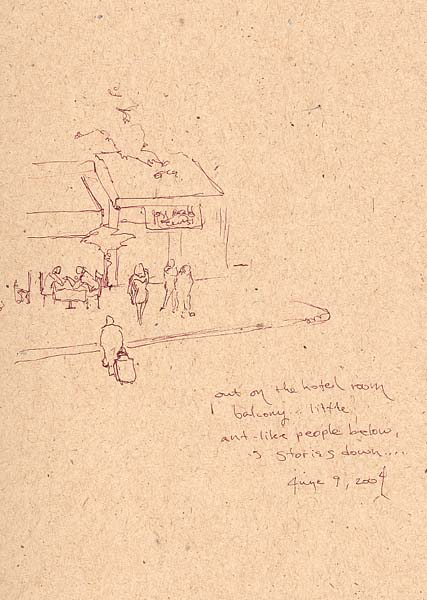 out on the hotel room
balcony.. little
ant-like people below,
5 stories down....
June 9, 2004